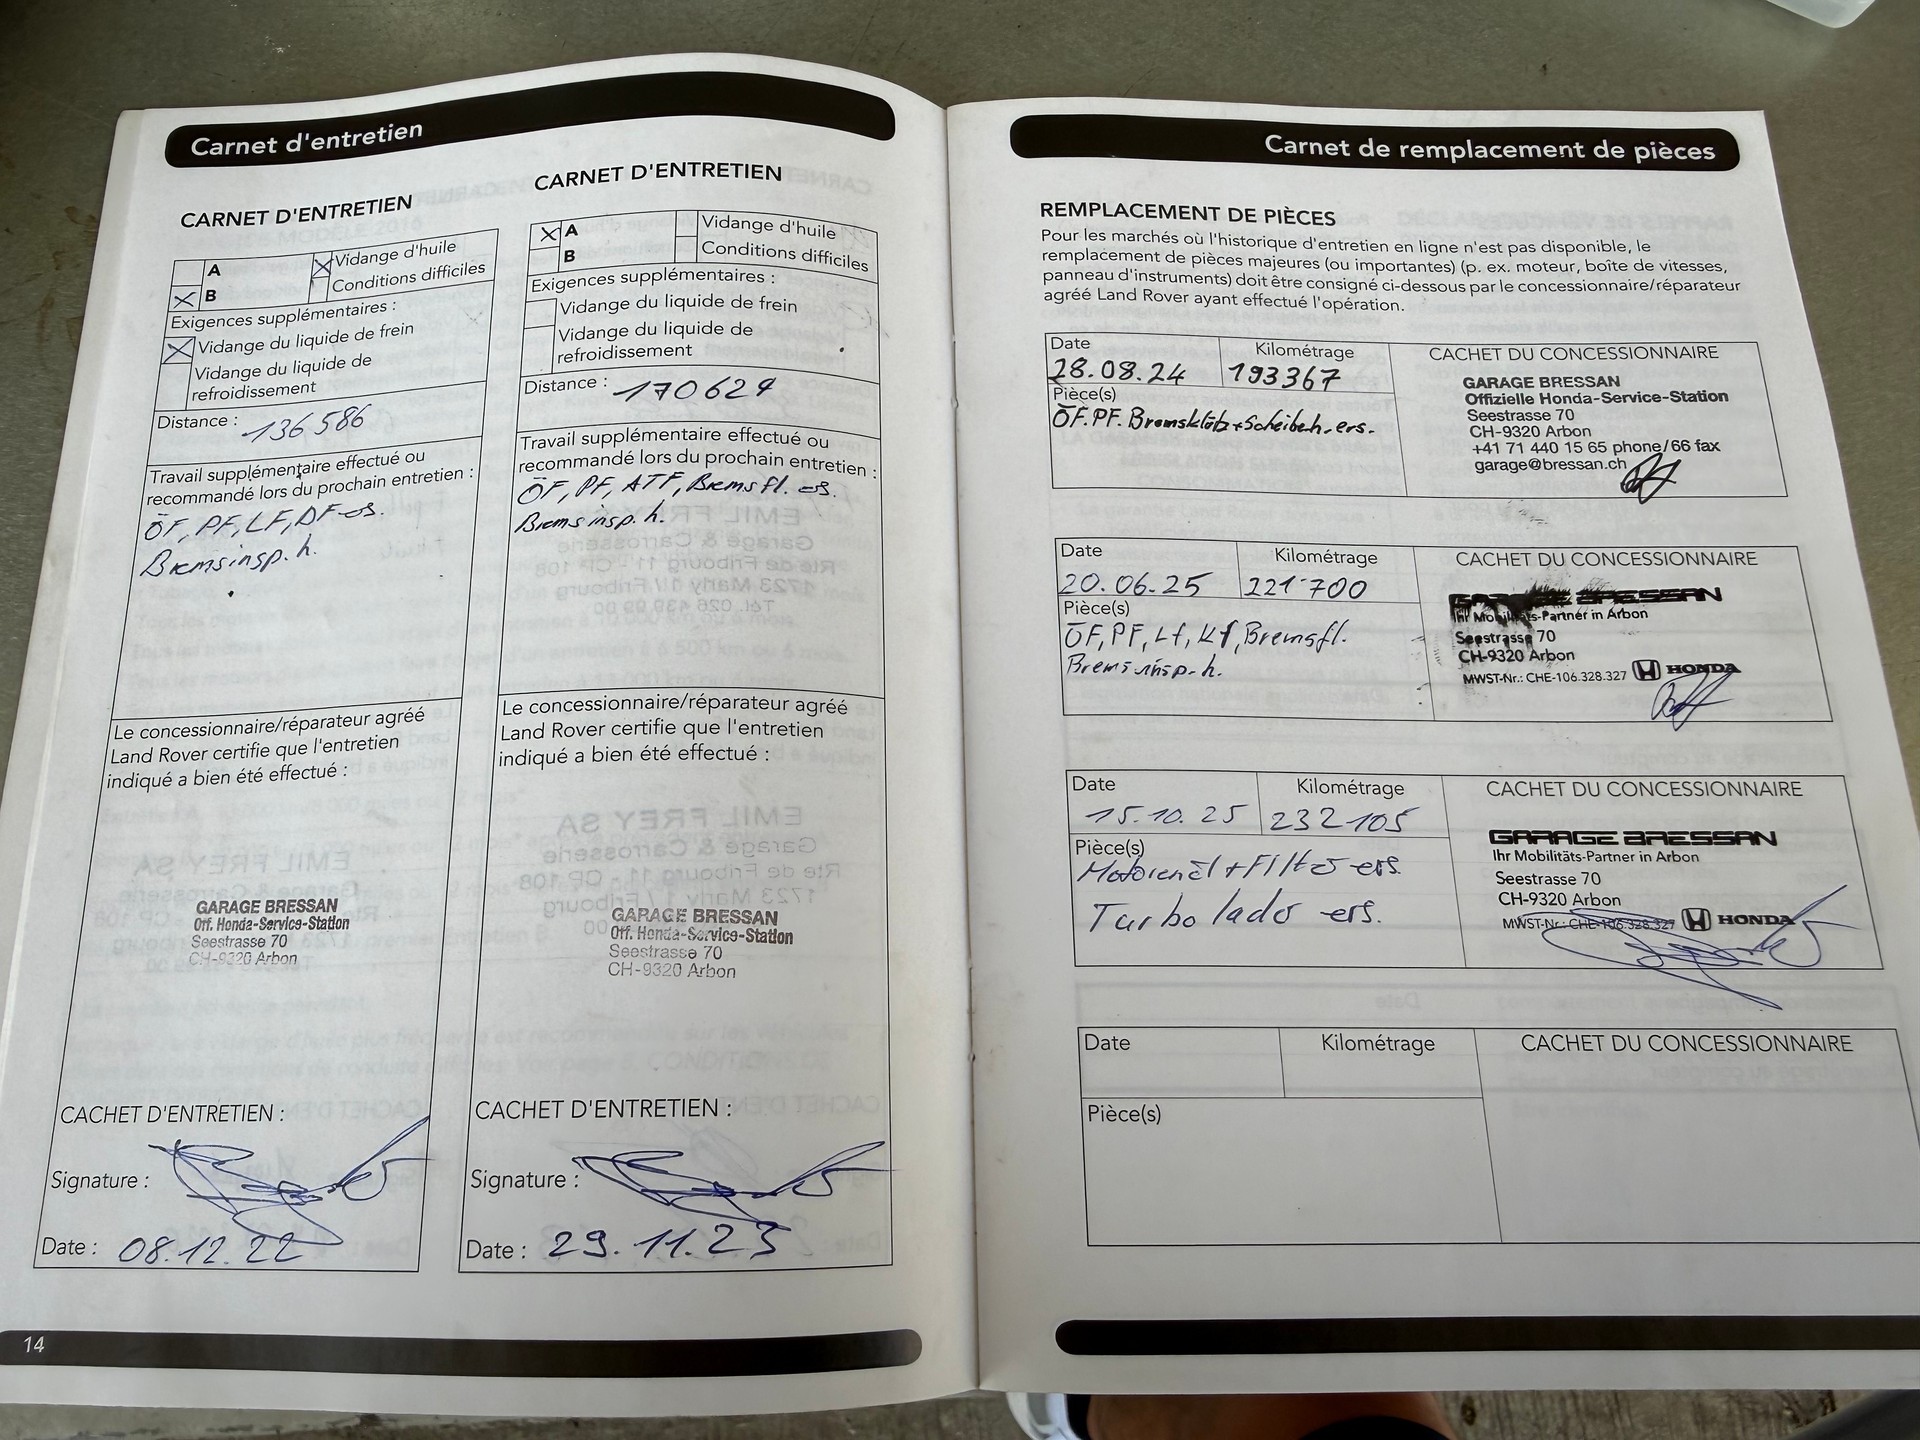 Carnet d'entretien
CARNET D'ENTRETIEN
A
B
Vidange d'huile
Conditions difficiles
Exigences supplémentaires :
Vidange du liquide de frein
Vidange du liquide de
refroidissement
Distance : 136 586
Travail supplémentaire effectué ou
recommandé lors du prochain entretien :
ÖF, PF, LF, DF ers.
Bremsinsp. h.
Le concessionnaire/réparateur agréé
Land Rover certifie que l'entretien
indiqué a bien été effectué :
GARAGE BRESSAN
Off. Honda-Service-Station
Seestrasse 70
CH-9320 Arbon
CACHET D'ENTRETIEN :
Signature :
Date : 08.12.22
CARNET D'ENTRETIEN
A
B
Vidange d'huile
Conditions difficiles
Exigences supplémentaires :
Vidange du liquide de frein
Vidange du liquide de
refroidissement
Distance : 170624
Travail supplémentaire effectué ou
recommandé lors du prochain entretien :
ÖF, PF, ATF, Bremsfl. ers.
Bremsinsp. h.
Le concessionnaire/réparateur agréé
Land Rover certifie que l'entretien
indiqué a bien été effectué :
GARAGE BRESSAN
Off. Honda-Service-Station
Seestrasse 70
CH-9320 Arbon
CACHET D'ENTRETIEN :
Signature :
Date : 29.11.23
14
Carnet de remplacement de pièces
REMPLACEMENT DE PIÈCES
Pour les marchés où l'historique d'entretien en ligne n'est pas disponible, le
remplacement de pièces majeures (ou importantes) (p. ex. moteur, boîte de vitesses,
panneau d'instruments) doit être consigné ci-dessous par le concessionnaire/réparateur
agréé Land Rover ayant effectué l'opération.
Date
28.08.24
Kilométrage
193367
Pièce(s)
ÖF. PF. Bremsklötz+Scheibe h. ers.
CACHET DU CONCESSIONNAIRE
GARAGE BRESSAN
Offizielle Honda-Service-Station
Seestrasse 70
CH-9320 Arbon
+41 71 440 15 65 phone/66 fax
garage@bressan.ch
Date
20.06.25
Kilométrage
221'700
Pièce(s)
ÖF, PF, Lf, Kf, Bremsfl.
Bremsinsp. h.
CACHET DU CONCESSIONNAIRE
GARAGE BRESSAN
Ihr Mobilitäts-Partner in Arbon
Seestrasse 70
CH-9320 Arbon
MWST-Nr.: CHE-106.328.327 HONDA
Date
15.10.25
Kilométrage
232105
Pièce(s)
Motorenöl + Filter ers.
Turbolader ers.
CACHET DU CONCESSIONNAIRE
GARAGE BRESSAN
Ihr Mobilitäts-Partner in Arbon
Seestrasse 70
CH-9320 Arbon
MWST-Nr.: CHE-106.328.327 HONDA
Date
Kilométrage
CACHET DU CONCESSIONNAIRE
Pièce(s)